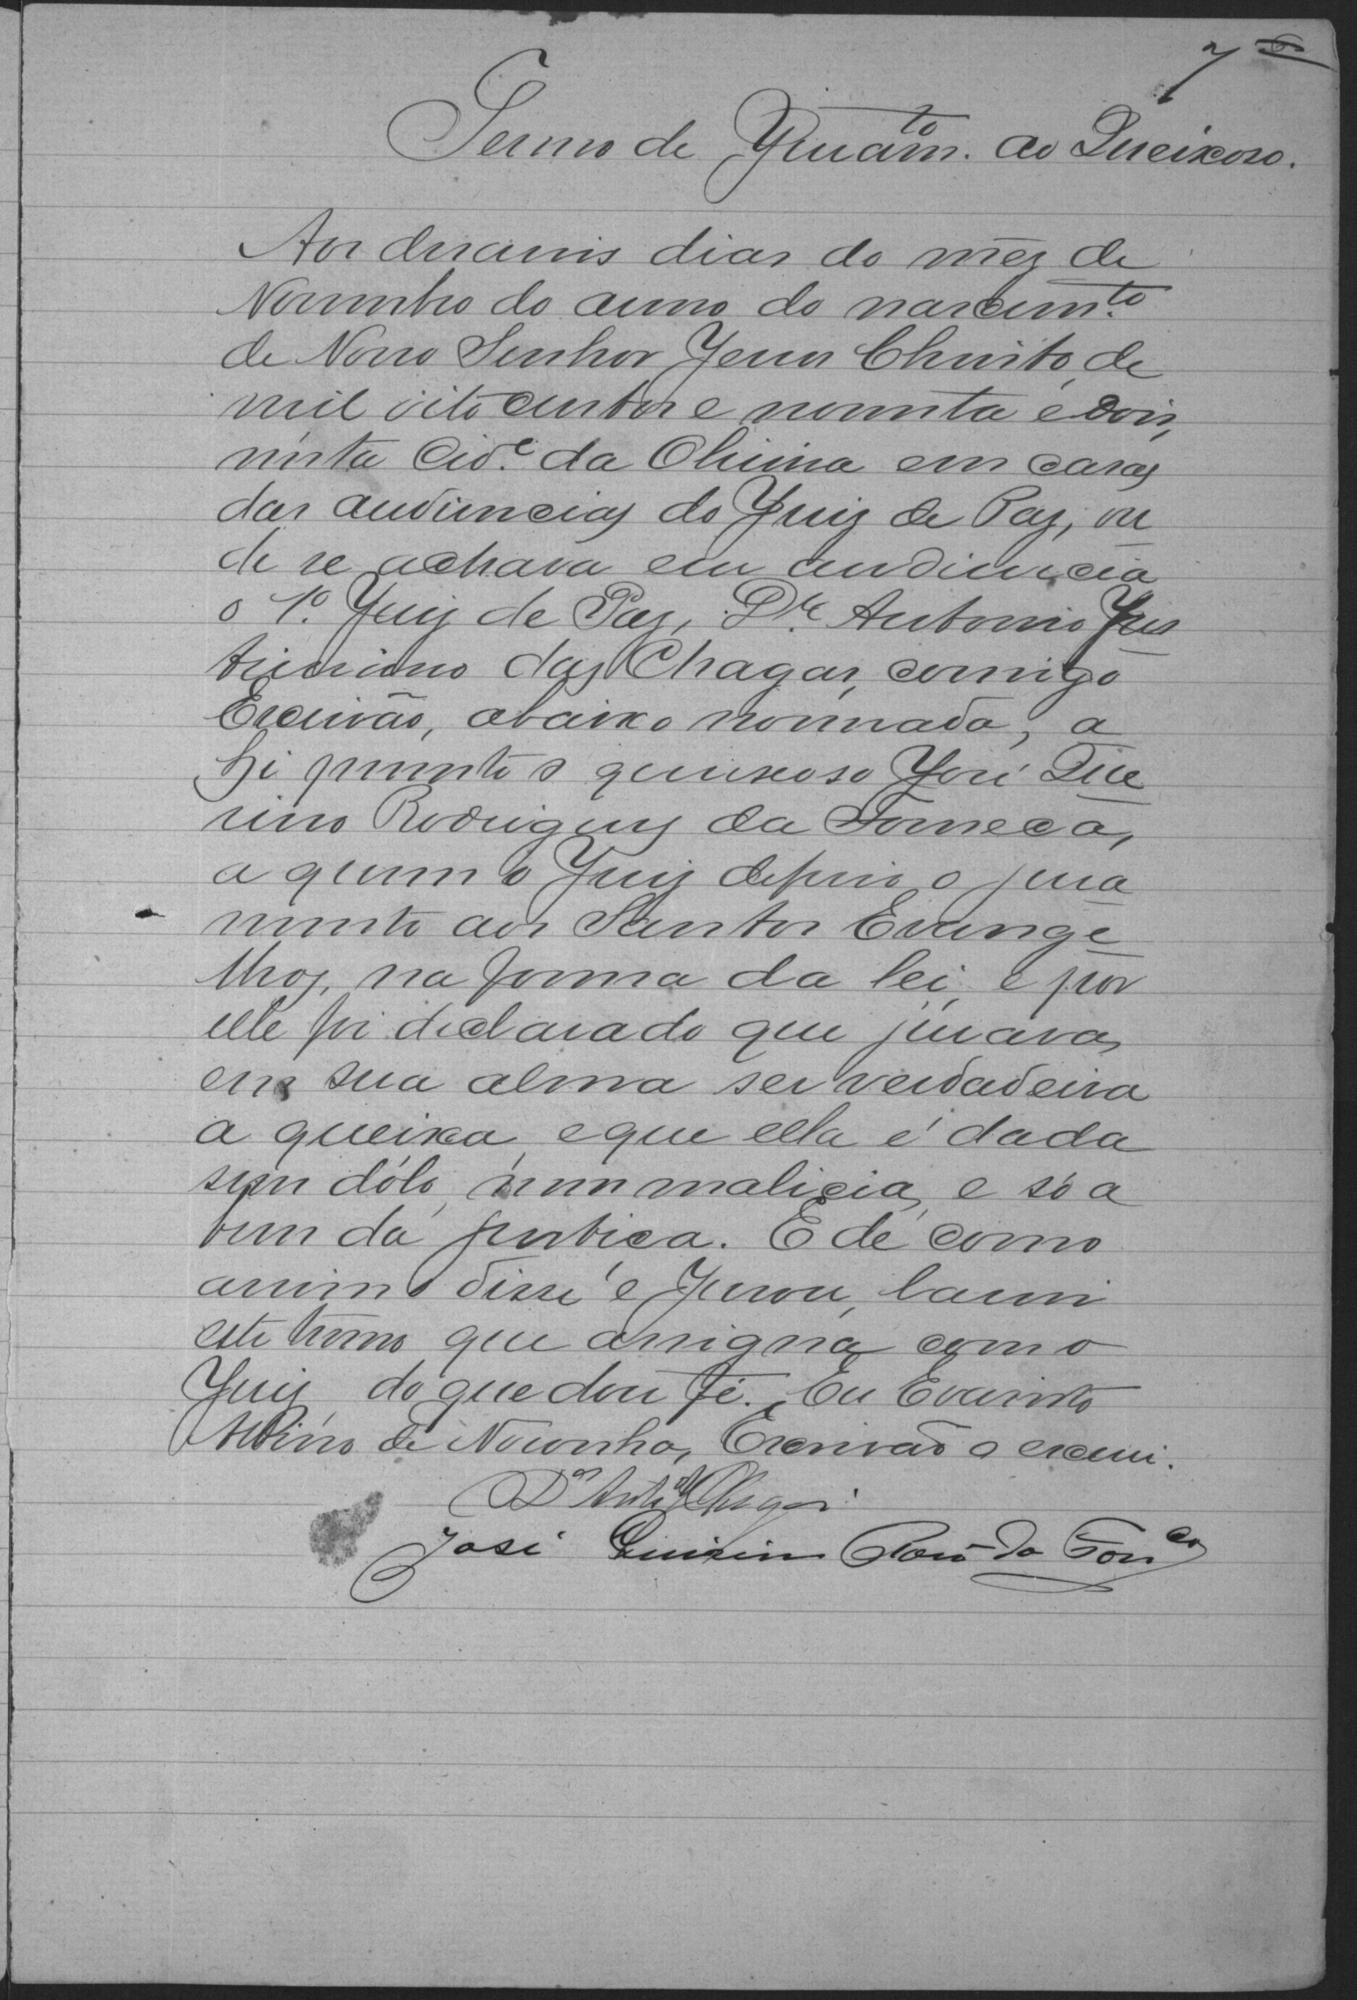 7
Termo de Juram.to ao Queixoso.
Aos deseseis dias do mez de
Novembro do anno do nascim.to
de Nosso Senhor Jesus Christo de
mil oito centos e noventa e dois,
nesta Cid.e da Oliveira em casa
das audiencias do Juiz de Paz, on
de se achava em audiencia
o 1.º Juiz de Paz, Dr. Antonio Jus
tiniano das Chagas, comigo
Escrivão, abaixo nomeado, a
hi presente o queixoso José Que
rino Rodrigues da Fonseca,
a quem o Juiz deferio o jura
mento aos Santos Evange
lhos, na forma da lei, e por
elle foi declarado que jurava
em sua alma ser verdadeira
a queixa, e que ella é dada
sem dólo, nem malicia, e só a
bem da justiça. E de como
assim o disse e jurou, lavrei
este termo que assigna com o
Juiz, do que dou fé. Eu Evaristo
Albino de Noronha, Escrivão o escrevi.
Dr Anto J Chagas.
José Quirino Roiz da Fonca